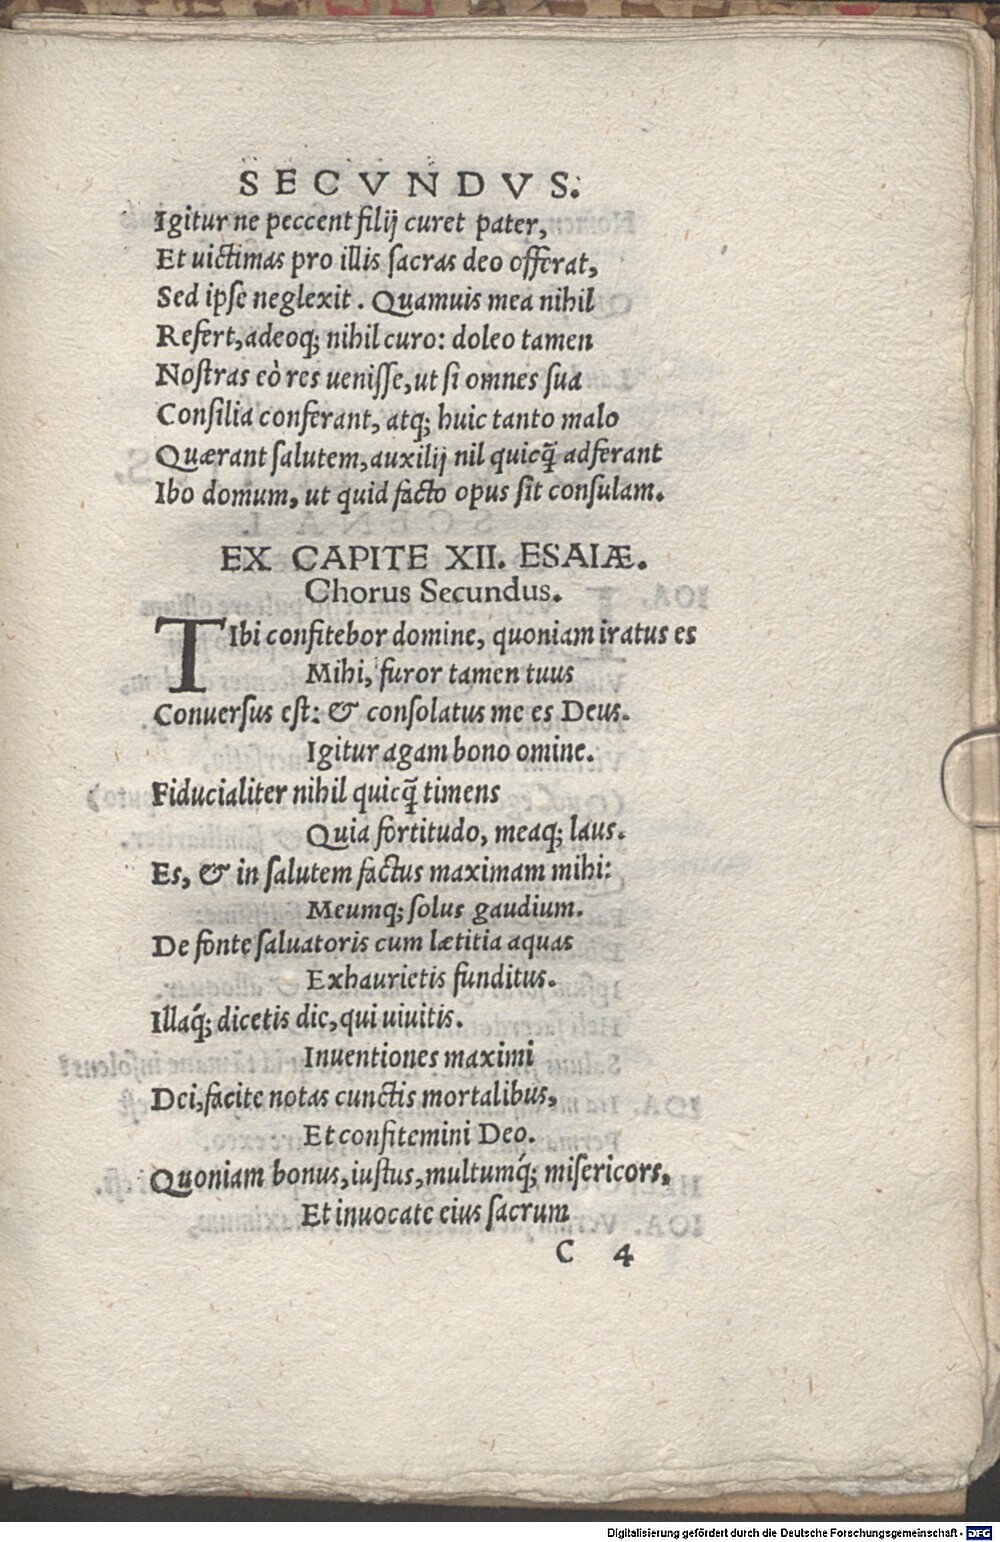 SECVNDVS.
Igitur ne peccent filij curet pater,
Et uictimas pro illis sacras deo offerat,
Sed ipse neglexit. Quamuis mea nihil
Refert, adeoq; nihil curo: doleo tamen
Nostras eò res uenisse, ut si omnes sua
Consilia conferant, atq; huic tanto malo
Quærant salutem, auxilij nil quicq̃ adferant
Ibo domum, ut quid facto opus sit consulam.
EX CAPITE XII. ESAIÆ.
Chorus Secundus.
TIbi confitebor domine, quoniam iratus es
Mihi, furor tamen tuus
Conuersus est: & consolatus me es Deus.
Igitur agam bono omine.
Fiducialiter nihil quicq̃ timens
Quia fortitudo, meaq; laus.
Es, & in salutem factus maximam mihi:
Meumq; solus gaudium.
De fonte saluatoris cum lætitia aquas
Exhaurietis funditus.
Illaq́; dicetis dic, qui uiuitis.
Inuentiones maximi
Dei, facite notas cunctis mortalibus,
Et confitemini Deo.
Quoniam bonus, iustus, multumq́; misericors,
Et inuocate eius sacrum
C 4
Digitalisierung gefördert durch die Deutsche Forschungsgemeinschaft - DFG